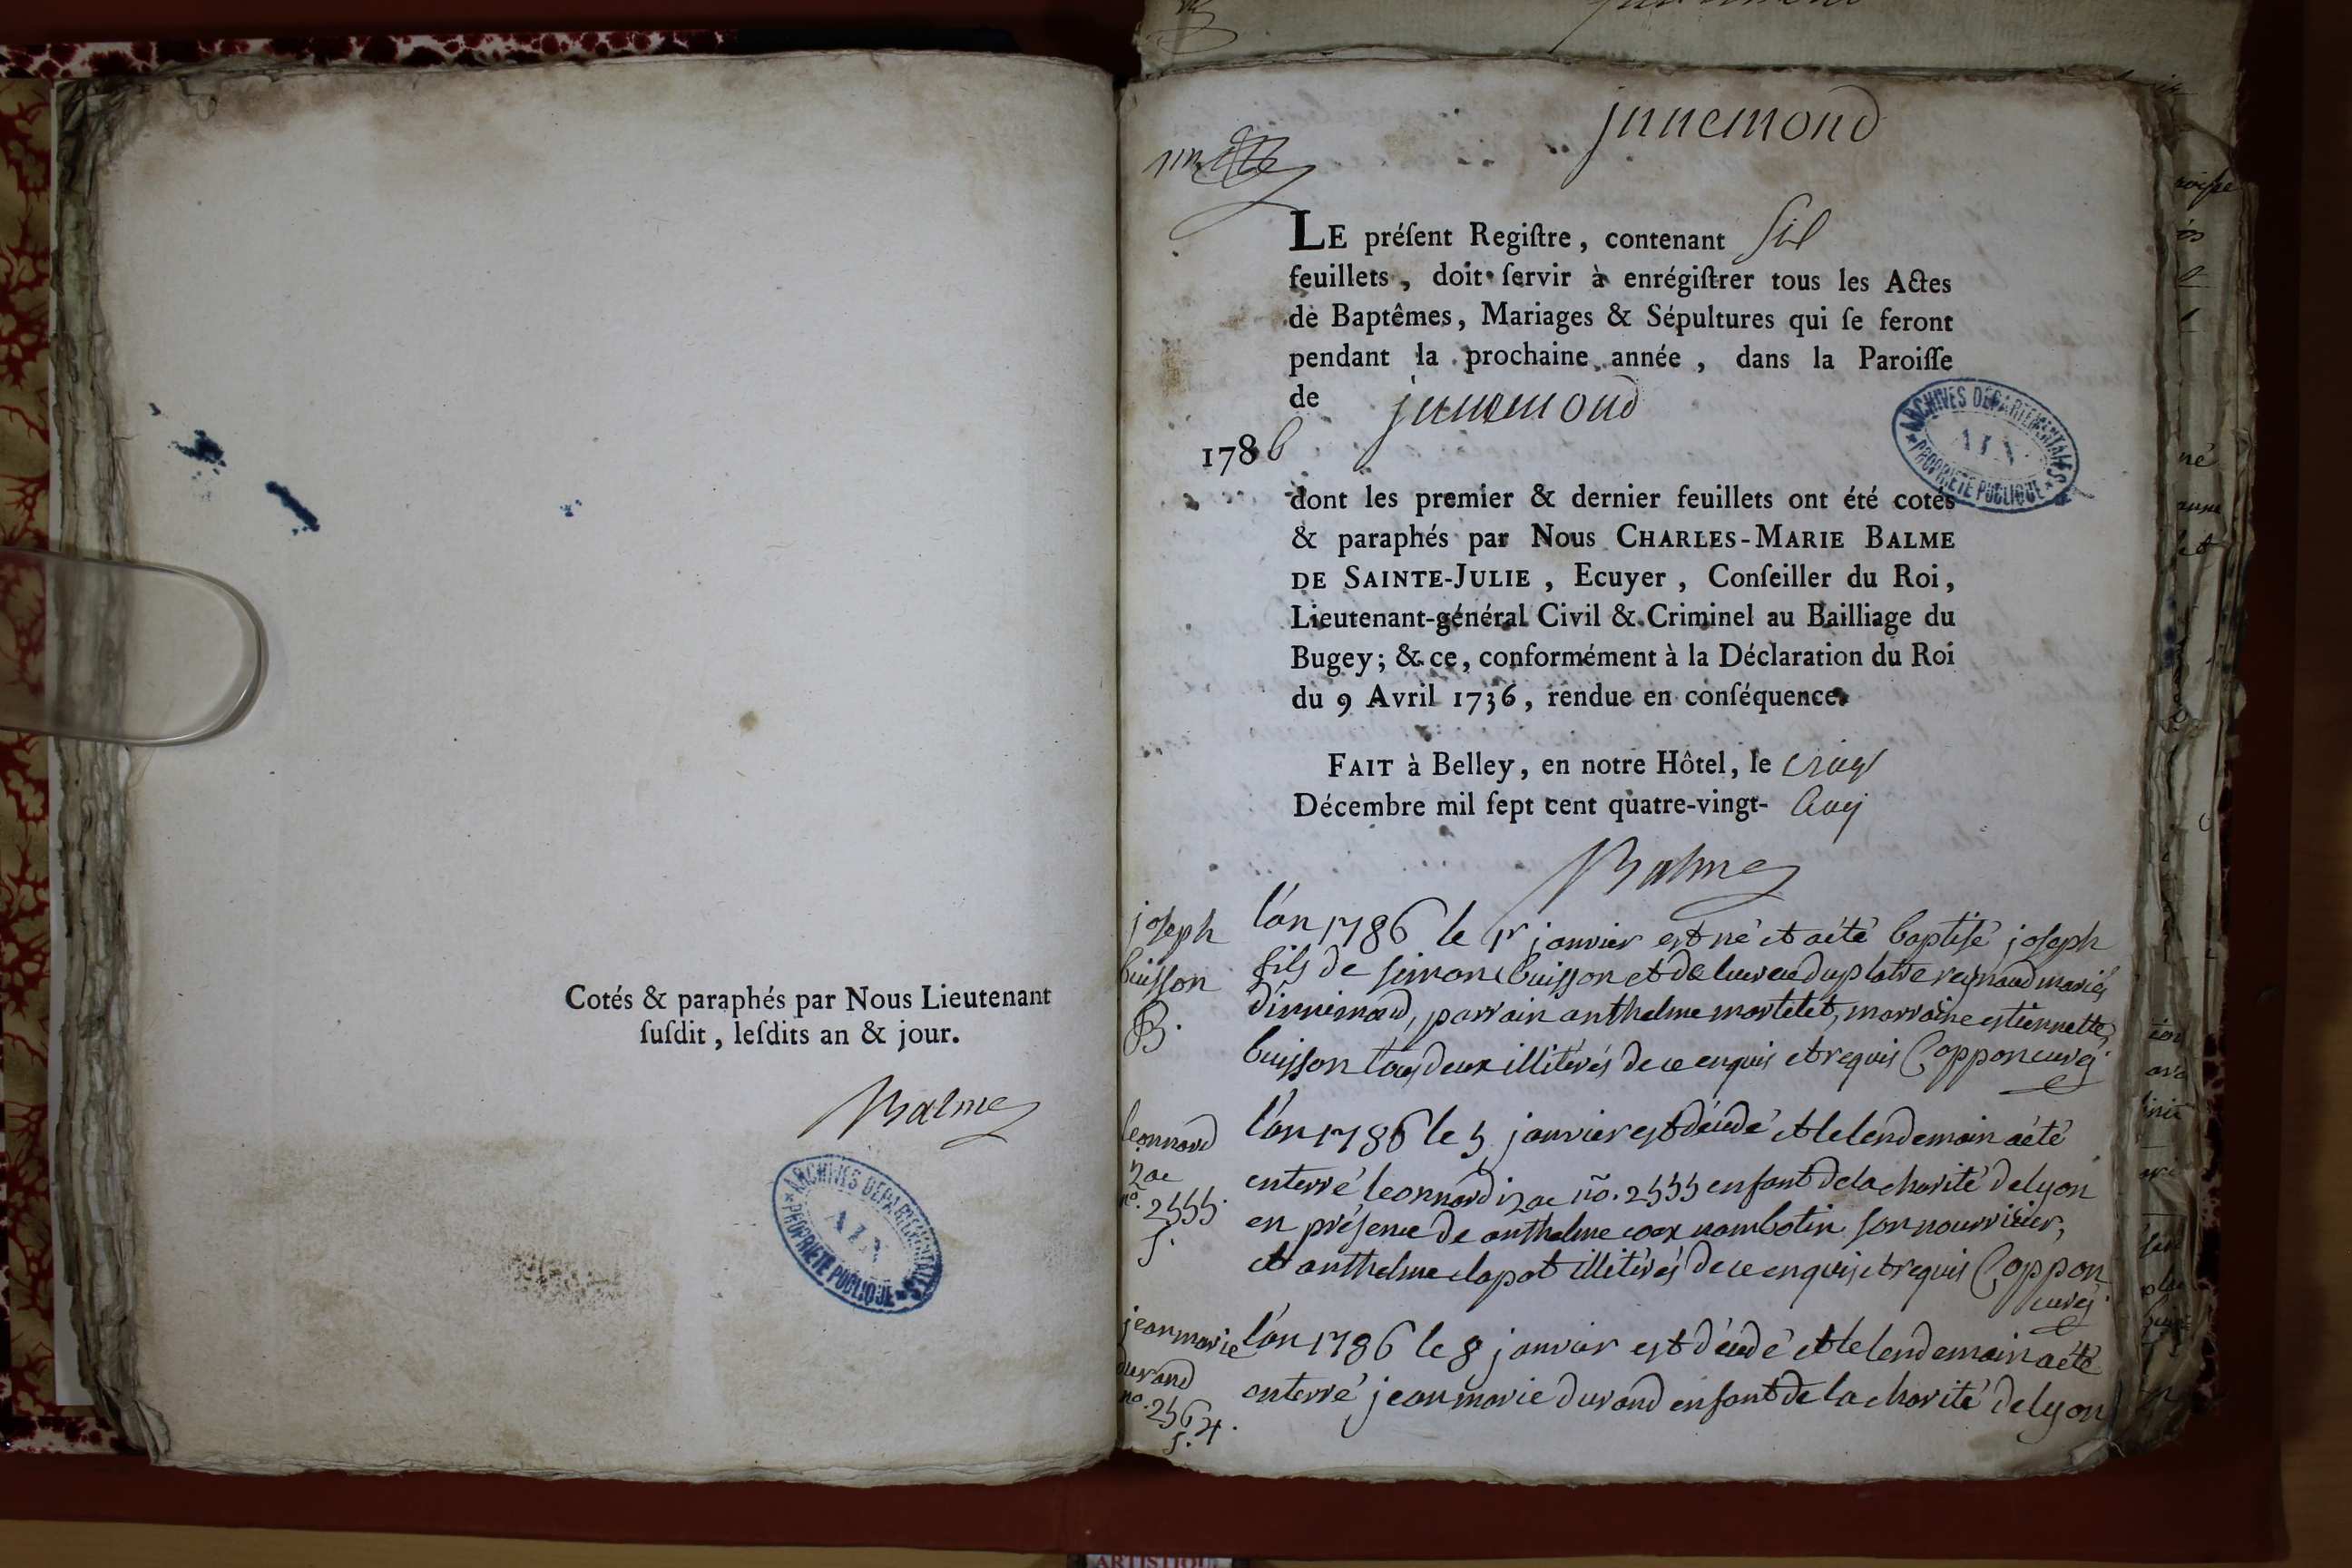 Cotés & paraphés par Nous Lieutenant
ſuſdit, leſdits an & jour.
Balme
ARCHIVES DEPARTEMENTALES
AIN
PROPRIETE PUBLIQUE
jnnemond
LE préſent Regiſtre, contenant six
feuillets, doit ſervir à enrégiſtrer tous les Actes
de Baptêmes, Mariages & Sépultures qui ſe feront
pendant la prochaine année, dans la Paroiſſe
de jnnemond
1786
ARCHIVES DEPARTEMENTALES
AIN
PROPRIETE PUBLIQUE
dont les premier & dernier feuillets ont été cotés
& paraphés par Nous CHARLES-MARIE BALME
DE SAINTE-JULIE, Ecuyer, Conſeiller du Roi,
Lieutenant-général Civil & Criminel au Bailliage du
Bugey; & ce, conformément à la Déclaration du Roi
du 9 Avril 1736, rendue en conſéquence.
FAIT à Belley, en notre Hôtel, le vingt
Décembre mil ſept cent quatre-vingt- cinq
Balme
joseph
buisson
B.
l'an 1786 le 1r janvier est né et a été baptisé joseph
fils de simon buisson et de reynaud mariés
d'innimond, parrain anthelme martelet, marraine estiennette
buisson tous deux illitérés de ce enquis et requis Coppon curé
leonnard
izac
no. 2555.
s.
l'an 1786 le 5 janvier est décédé et le lendemain a été
enterré leonnard izac no. 2555 enfant de la charité de lyon
en présence de anthelme nambotin son nourricier,
et anthelme lapot illitérés de ce enquis et requis Coppon
curé
jean marie
durand
no. 2564.
s.
l'an 1786 le 8 janvier est décédé et le lendemain a été
enterré jean marie durand enfant de la charité de lyon
ARTISTIQUE